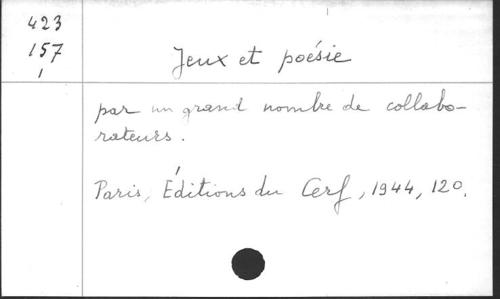 423
157
1
Jeux et poésie
par un grand nombre de collabo-
rateurs.
Paris, Éditions du Cerf, 1944, 120.